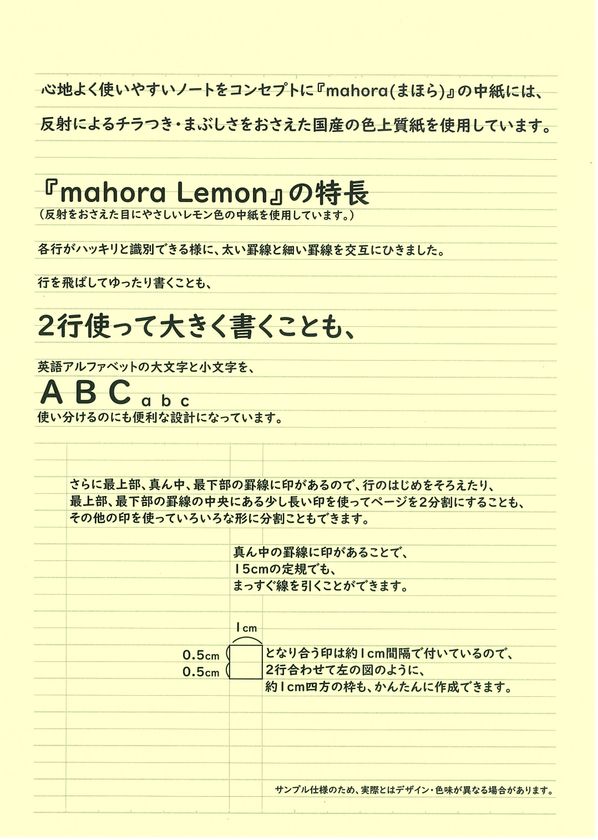 心地よく使いやすいノートをコンセプトに『mahora(まほら)』の中紙には、
反射によるチラつき・まぶしさをおさえた国産の色上質紙を使用しています。
『mahora Lemon』の特長
（反射をおさえた目にやさしいレモン色の中紙を使用しています。）
各行がハッキリと識別できる様に、太い罫線と細い罫線を交互にひきました。
行を飛ばしてゆったり書くことも、
2行使って大きく書くことも、
英語アルファベットの大文字と小文字を、
A B C a b c
使い分けるのにも便利な設計になっています。
さらに最上部、真ん中、最下部の罫線に印があるので、行のはじめをそろえたり、
最上部、最下部の罫線の中央にある少し長い印を使ってページを2分割にすることも、
その他の印を使っていろいろな形に分割こともできます。
真ん中の罫線に印があることで、
15cmの定規でも、
まっすぐ線を引くことができます。
1cm
0.5cm
0.5cm
となり合う印は約1cm間隔で付いているので、
2行合わせて左の図のように、
約1cm四方の枠も、かんたんに作成できます。
サンプル仕様のため、実際とはデザイン・色味が異なる場合があります。